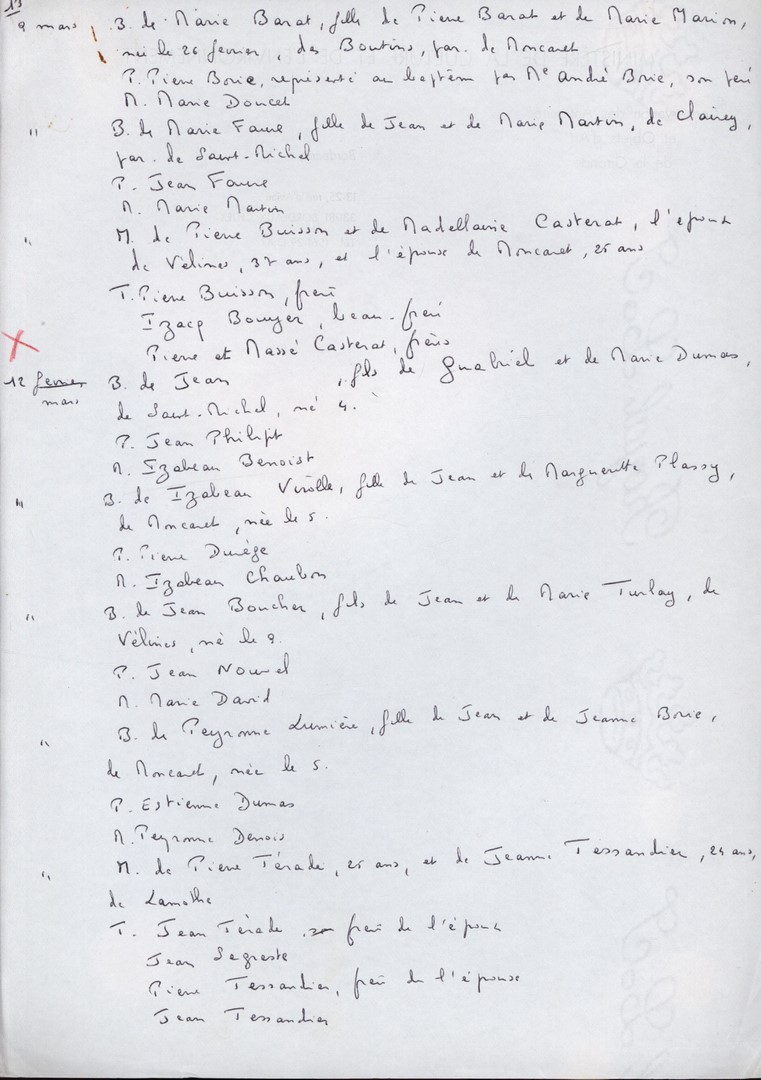 13
9 mars B. de Marie Barat, fille de Pierre Barat et de Marie Marion,
née le 26 fevrier, des Boutins, par. de Moncaret
P. Pierre Borie, représenté au baptêm par Me André Borie, son père
M. Marie Doucet
" B. de Marie Faure, fille de Jean et de Marie Martin, de Clairey,
par. de Saint-Michel
P. Jean Faure
M. Marie Martin
" M. de Pierre Buisson et de Madellaine Casterat, l'epoux
de Vélines, 37 ans, et l'épouse de Moncaret, 25 ans
T. Pierre Buisson, frère
Izacq Bouyer, beau-frère
Pierre et Massé Casterat, frères
12 fevrier B. de Jean , fils de Guabriel et de Marie Dumas,
mars
de Saint-Michel, né 4.
P. Jean Philipt
M. Izabeau Benoist
" B. de Izabeau Virolle, fille de Jean et de Margueritte Plassy,
de Moncaret, née le 5.
P. Pierre Durège
M. Izabeau Chaubon
" B. de Jean Boucher, fils de Jean et de Marie Turlay, de
Vélines, né le 9.
P. Jean Nouvel
M. Marie David
" B. de Peyronne Lumière, fille de Jean et de Jeanne Borie,
de Moncaret, née le 5.
P. Estienne Dumas
M. Peyronne Denois
" M. de Pierre Térade, 25 ans, et de Jeanne Tessandier, 24 ans,
de Lamothe
T. Jean Térade, frère de l'époux
Jean Segreste
Pierre Tessandier, frère de l'épouse
Jean Tessandier